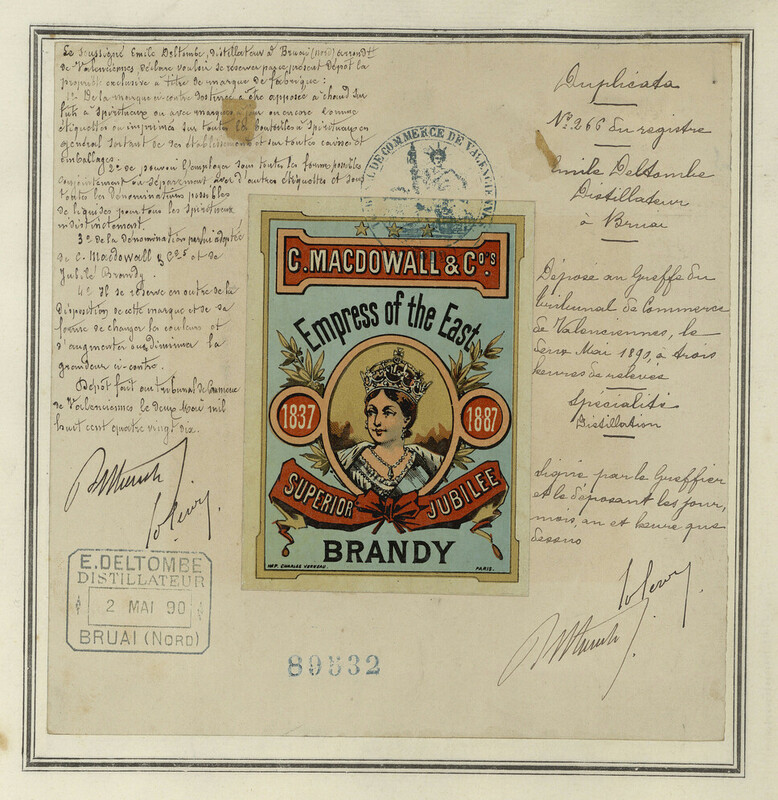 Le soussigné Emile Deltombe, distillateur à Bruai (nord) arrondt
de Valenciennes, déclare vouloir se réserver par le présent dépôt la
propriété exclusive à titre de marque de fabrique:
1º De la marque ci-contre destinée à être apposée à chaud sur
futs à spiritueux ou avec marques à jour ou encore comme
étiquettes ou imprimés sur toutes les bouteilles à spiritueux en
général sortant de ses établissements et sur toutes caisses et
emballages.
2º de pouvoir l'employer sous toutes les formes possibles
conjointement ou séparément avec d'autres étiquettes et sous
toutes les dénominations possibles
de liquides pour tous les spiritueux
indistinctement
3º de la dénomination par lui adoptée
de C. Macdowall & Co's et de
Jubilé Brandy.
4º Il se réserve en outre de la
disposition de cette marque et de sa
forme de changer la couleur et
d'augmenter ou diminuer la
grandeur ci-contre.
Dépôt fait au tribunal de Commerce
de Valenciennes le deux Mai mil
huit cent quatre vingt dix.
E. DELTOMBE
DISTILLATEUR
2 MAI 90
BRUAI (NORD)
TRIBUNAL DE COMMERCE DE VALENCIENNES
C. MACDOWALL & Co's
Empress of the East
1837
1887
SUPERIOR JUBILEE
BRANDY
IMP. CHARLES VERNEAU.
PARIS.
80532
Duplicata
Nº 266 du registre
Emile Deltombe
Distillateur
à Bruai
Déposé au Greffe du
tribunal de Commerce
de Valenciennes, le
deux Mai 1890, à trois
heures de relevée
Spécialité
Distillation
Signé par le Greffier
et le déposant les jour,
mois, an et heure que
dessus